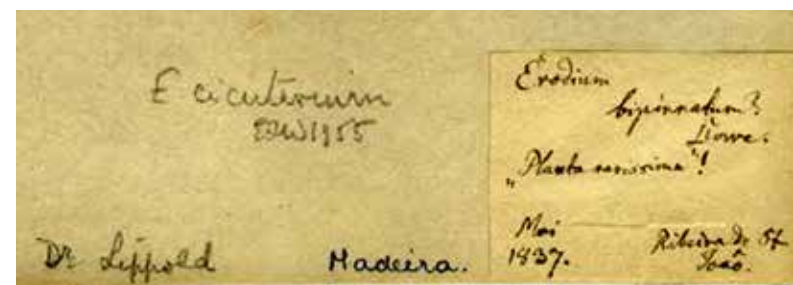 E cicutarium
EFW 1955
Dr Lippold
Madeira.
Erodium
bipinnatum?
Lowe.
"Planta rarissima"!
Mai
1837.
Ribeira de St
João.